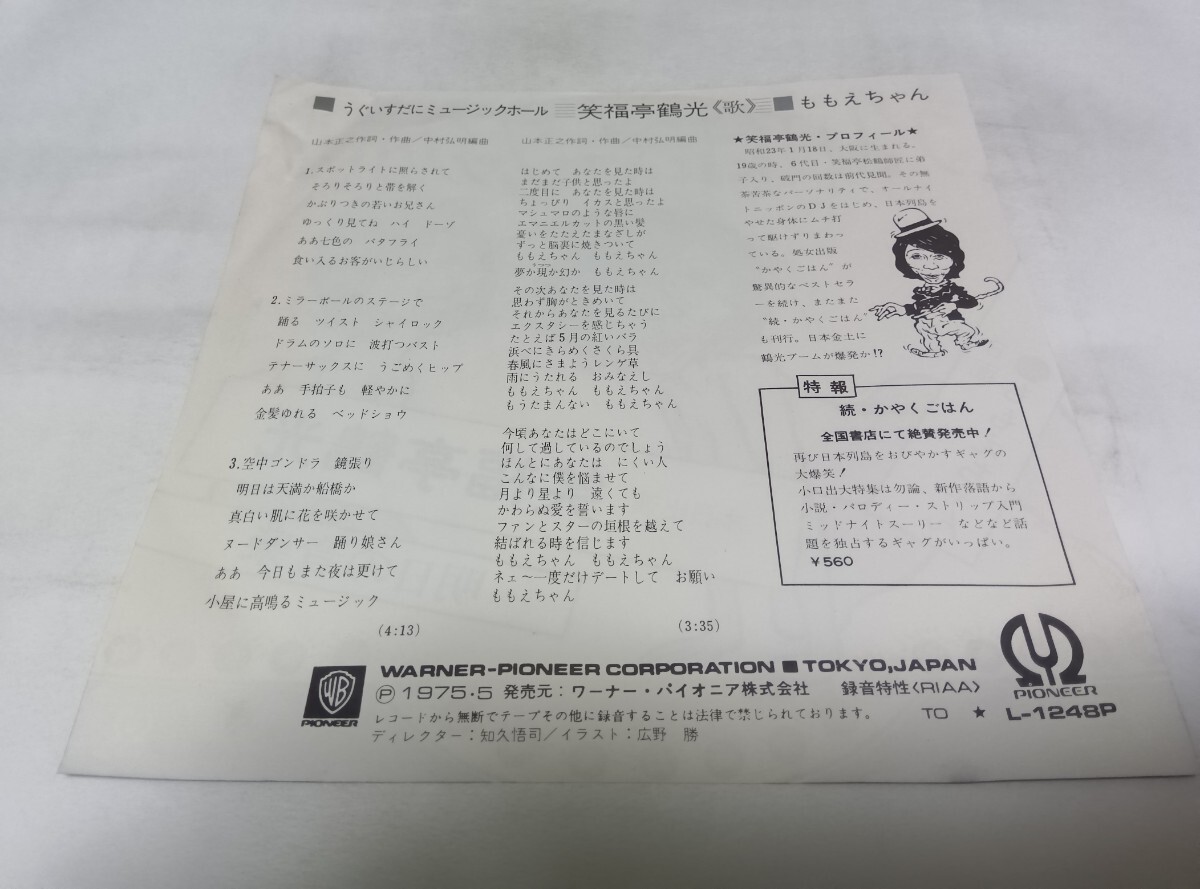 ■ うぐいすだにミュージックホール 笑福亭鶴光《歌》 ■ ももえちゃん
山本正之作詞・作曲/中村弘明編曲
1.スポットライトに照らされて
そろりそろりと帯を解く
かぶりつきの若いお兄さん
ゆっくり見てね ハイ ドーゾ
ああ七色の バタフライ
食い入るお客がいじらしい
2.ミラーボールのステージで
踊る ツイスト シャイロック
ドラムのソロに 波打つバスト
テナーサックスに うごめくヒップ
ああ 手拍子も 軽やかに
金髪ゆれる ベッドショウ
3.空中ゴンドラ 鏡張り
明日は天満か船橋か
真白い肌に花を咲かせて
ヌードダンサー 踊り娘さん
ああ 今日もまた夜は更けて
小屋に高鳴るミュージック
(4:13)
山本正之作詞・作曲/中村弘明編曲
はじめて あなたを見た時は
まだまだ子供と思ったよ
二度目に あなたを見た時は
ちょっぴり イカスと思ったよ
マシュマロのような唇に
エマニエルカットの黒い髪
憂いをたたえたまなざしが
ずっと脳裏に焼きついて
ももえちゃん ももえちゃん
夢か現か幻か ももえちゃん
その次あなたを見た時は
思わず胸がときめいて
それからあなたを見るたびに
エクスタシーを感じちゃう
たとえば5月の紅いバラ
浜べにきらめくさくら貝
春風にさまようレンゲ草
雨にうたれる おみなえし
ももえちゃん ももえちゃん
もうたまんない ももえちゃん
今頃あなたはどこにいて
何して過しているのでしょう
ほんとにあなたは にくい人
こんなに僕を悩ませて
月より星より 遠くても
かわらぬ愛を誓います
ファンとスターの垣根を越えて
結ばれる時を信じます
ももえちゃん ももえちゃん
ネェ〜一度だけデートして お願い
ももえちゃん
(3:35)
★笑福亭鶴光・プロフィール★
昭和23年1月18日、大阪に生まれる。
19歳の時、6代目・笑福亭松鶴師匠に弟
子入り、破門の回数は前代見聞。その無
茶苦茶なパーソナリティで、オールナイ
トニッポンのDJをはじめ、日本列島を
やせた身体にムチ打
って駆けずりまわっ
ている。処女出版
"かやくごはん"が
驚異的なベストセラ
ーを続け、またまた
"続・かやくごはん"
も刊行。日本全土に
鶴光ブームが爆発か!?
特報
続・かやくごはん
全国書店にて絶賛発売中!
再び日本列島をおびやかすギャグの
大爆笑!
小口出大特集は勿論、新作落語から
小説・パロディー・ストリップ入門
ミッドナイトスーリー などなど話
題を独占するギャグがいっぱい。
¥560
WB
PIONEER
WARNER-PIONEER CORPORATION ■ TOKYO,JAPAN
Ⓟ1975・5 発売元:ワーナー・パイオニア株式会社 録音特性〈RIAA〉
レコードから無断でテープその他に録音することは法律で禁じられております。 TO ★ L-1248P
ディレクター:知久悟司/イラスト:広野 勝
PIONEER